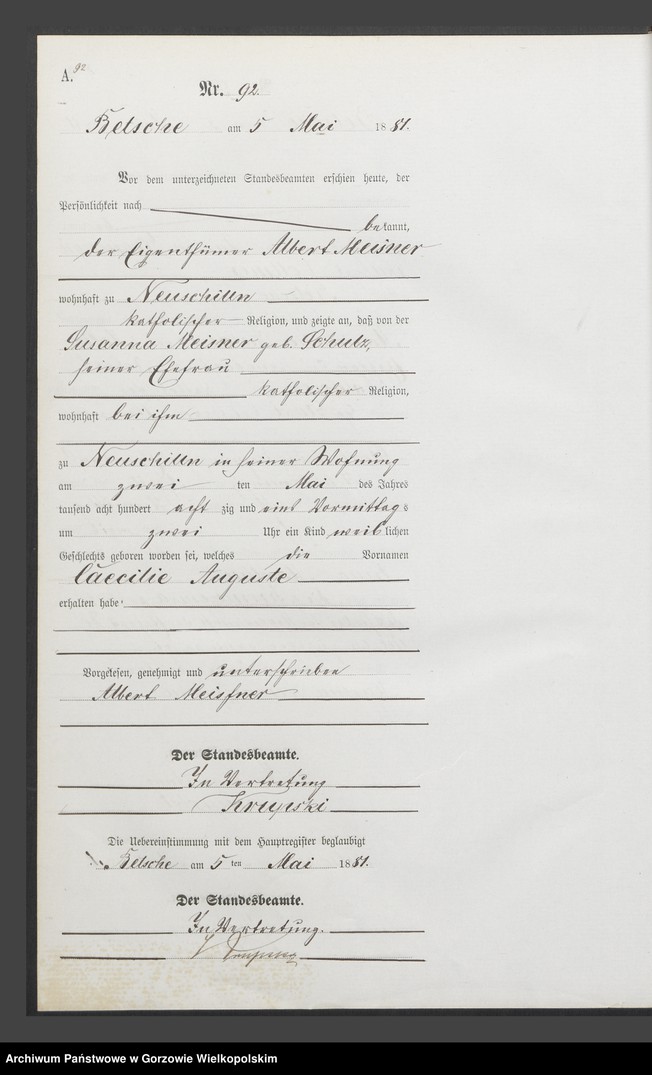 A. 92
Nr. 92.
Betsche am 5 Mai 1881.
Vor dem unterzeichneten Standesbeamten erschien heute, der
Persönlichkeit nach
bekannt,
der Eigenthümer Albert Meisner
wohnhaft zu Neuschilln
katholischer Religion, und zeigte an, daß von der
Susanna Meisner geb. Schulz,
seiner Ehefrau
katholischer Religion,
wohnhaft bei ihm
zu Neuschilln in seiner Wohnung
am zwei ten Mai des Jahres
tausend acht hundert acht zig und eins Vormittags
um zwei Uhr ein Kind weiblichen
Geschlechts geboren worden sei, welches die Vornamen
Cäecilie Auguste
erhalten habe.
Vorgelesen, genehmigt und unterschrieben
Albert Meisner
Der Standesbeamte.
In Vertretung
Krupski
Die Uebereinstimmung mit dem Hauptregister beglaubigt
Betsche am 5 ten Mai 1881.
Der Standesbeamte.
In Vertretung.
Archiwum Państwowe w Gorzowie Wielkopolskim